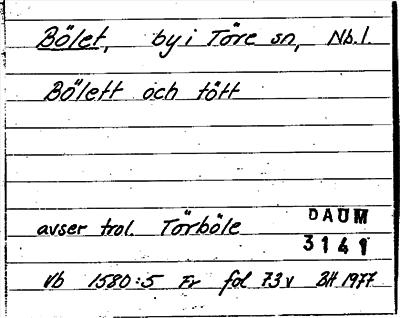 Bölet, by i Töre sn, Nb.l.
Bölett och tött
avser trol. Törböle
DAUM
3141
Vb 1580:5 Fr fol 73v BH 1977